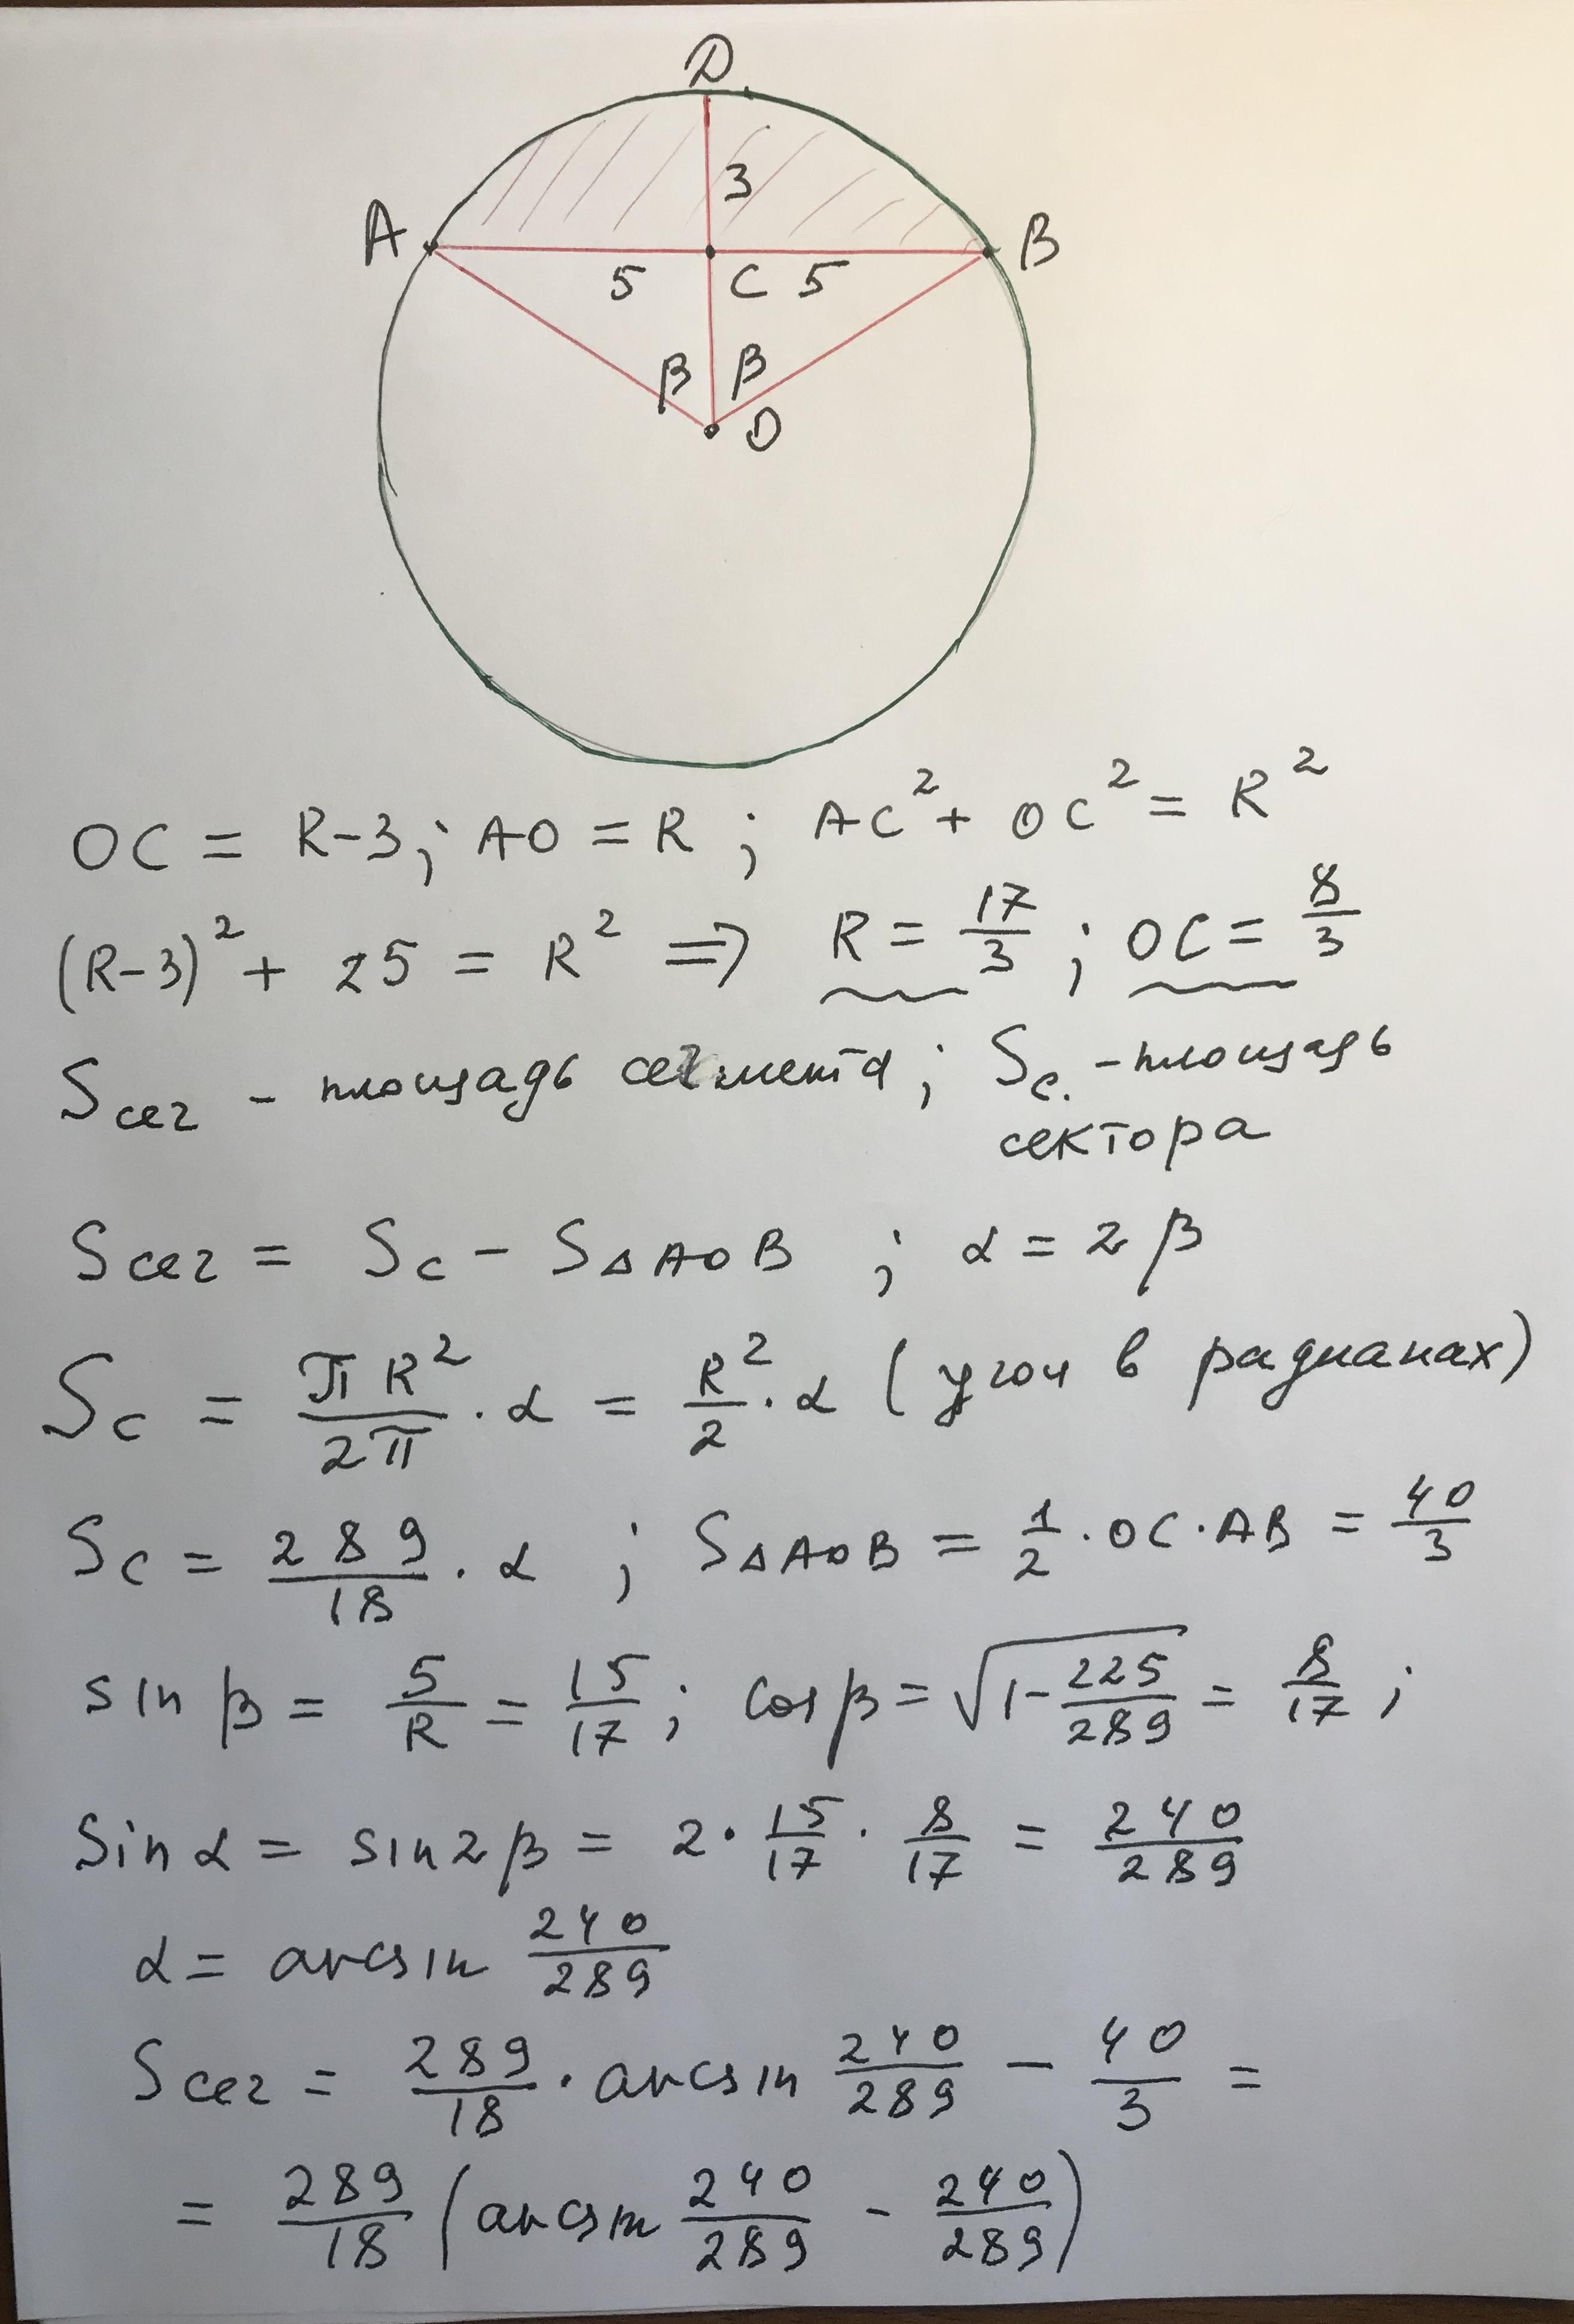 D
3
A B
5 C 5
β β
O
OC = R-3; AO = R; AC² + OC² = R²
(R-3)² + 25 = R² => R = 17/3; OC = 8/3
Sсег - площадь сегмента; Sс. - площадь
сектора
Sсег = Sс - S△AOB; α = 2β
Sс = πR²/2π · α = R²/2 · α (угол в радианах)
Sс = 289/18 · α; S△AOB = 1/2 · OC · AB = 40/3
sin β = 5/R = 15/17; cos β = √(1 - 225/289) = 8/17;
Sin α = sin 2β = 2 · 15/17 · 8/17 = 240/289
α = arcsin 240/289
Sсег = 289/18 · arcsin 240/289 - 40/3 =
= 289/18 (arcsin 240/289 - 240/289)